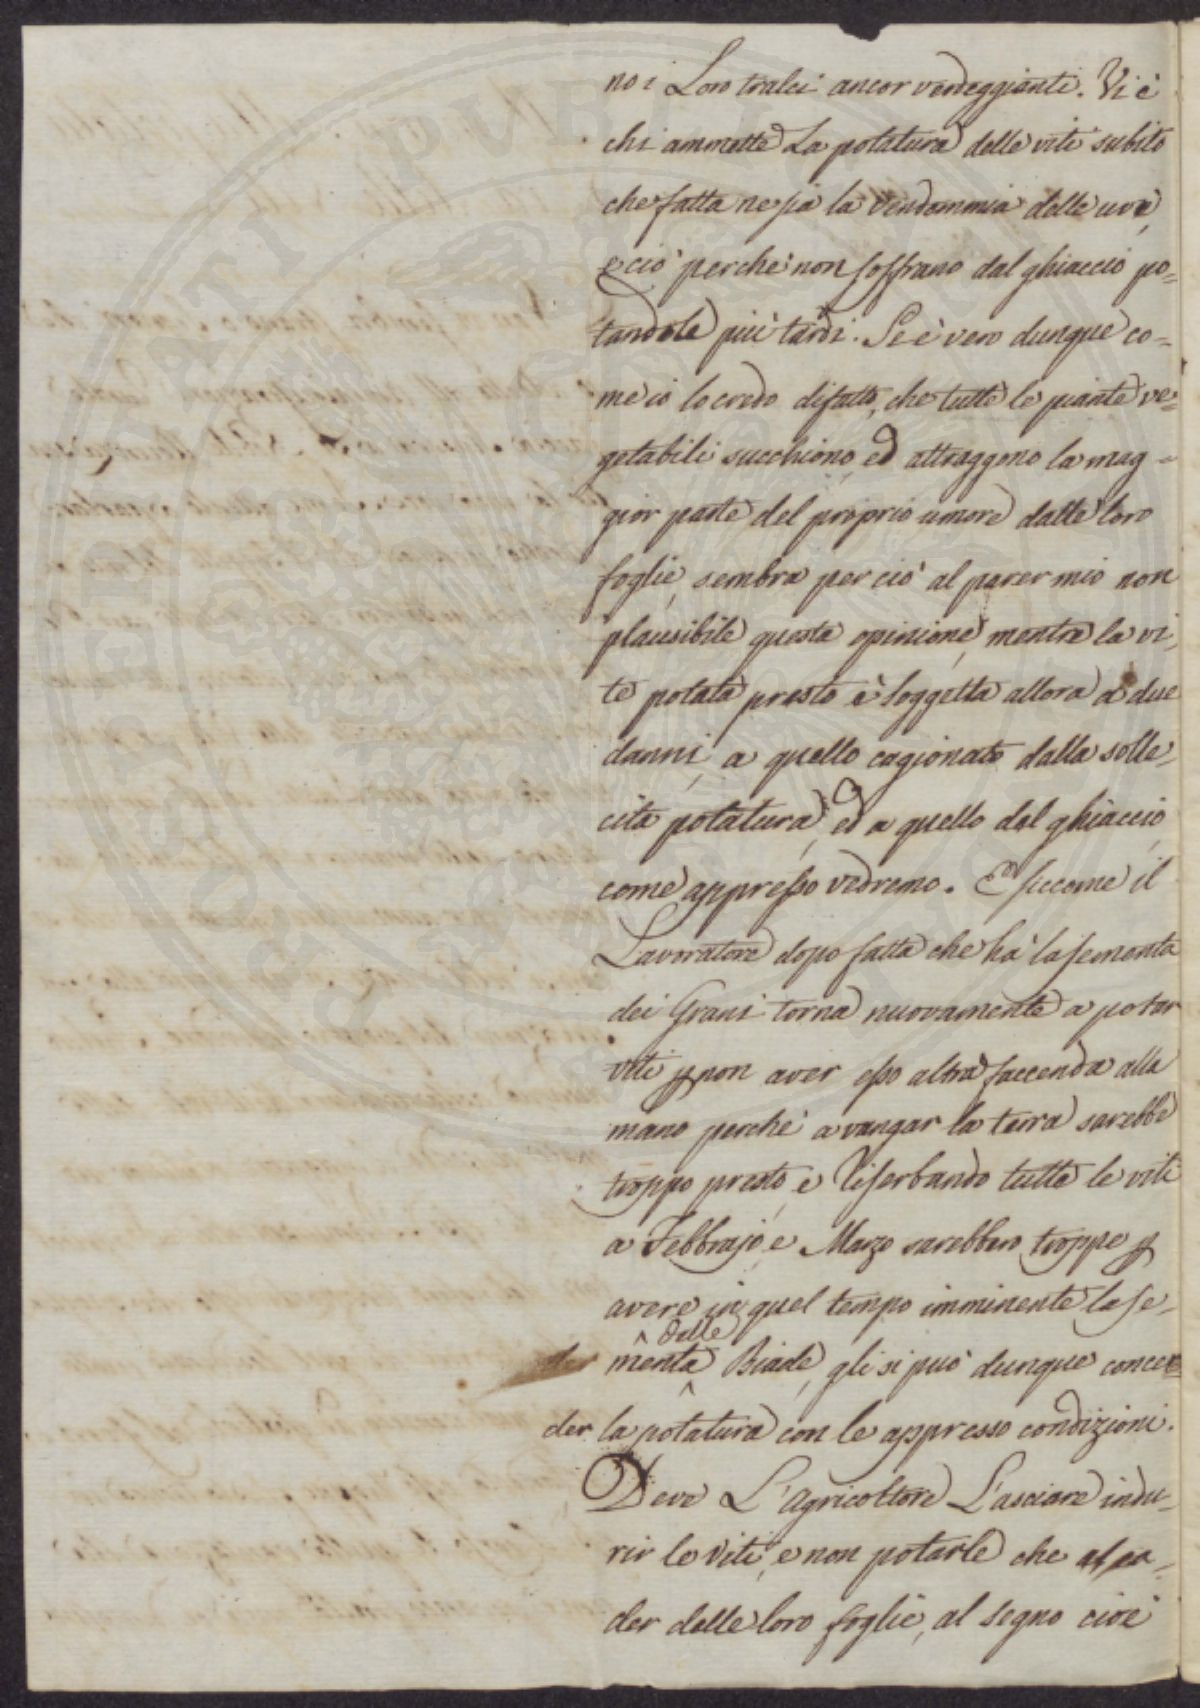 no i Loro tralci ancor verdeggianti. Vi è
chi ammette La potatura delle viti subito
che fatta ne sia la vendemmia delle uve,
e ciò perchè non soffrano dal ghiaccio po=
tandole più tardi. Se è vero dunque co=
me io lo credo difatto, che tutte le piante ve=
getabili succhiono, ed attraggono la mag=
gior parte del proprio umore dalle loro
foglie, sembra per ciò al parer mio non
plausibile questa opinione, mentre la vi,
te potata presto è soggetta allora a due
danni, a quello cagionato dalla solle,
cita potatura, ed a quello del ghiaccio,
come appresso vedremo. E siccome il
Lavoratore dopo fatta che hà la sementa
dei Grani torna nuovamente a potar
viti p non aver esso altra faccenda alla
mano perchè a vangar la terra sarebbe
troppo presto, e riserbando tutte le viti
a Febbrajo, e Marzo sarebbero troppe p
avere in quel tempo imminente la se,
delle
menta Biade, gli si può dunque conce=
der la potatura con le appresso condizioni.
Deve L'Agricoltore Lasciare indu=
rir le Viti, e non potarle che al ca=
der delle loro foglie, al segno cioè
PUBLICI